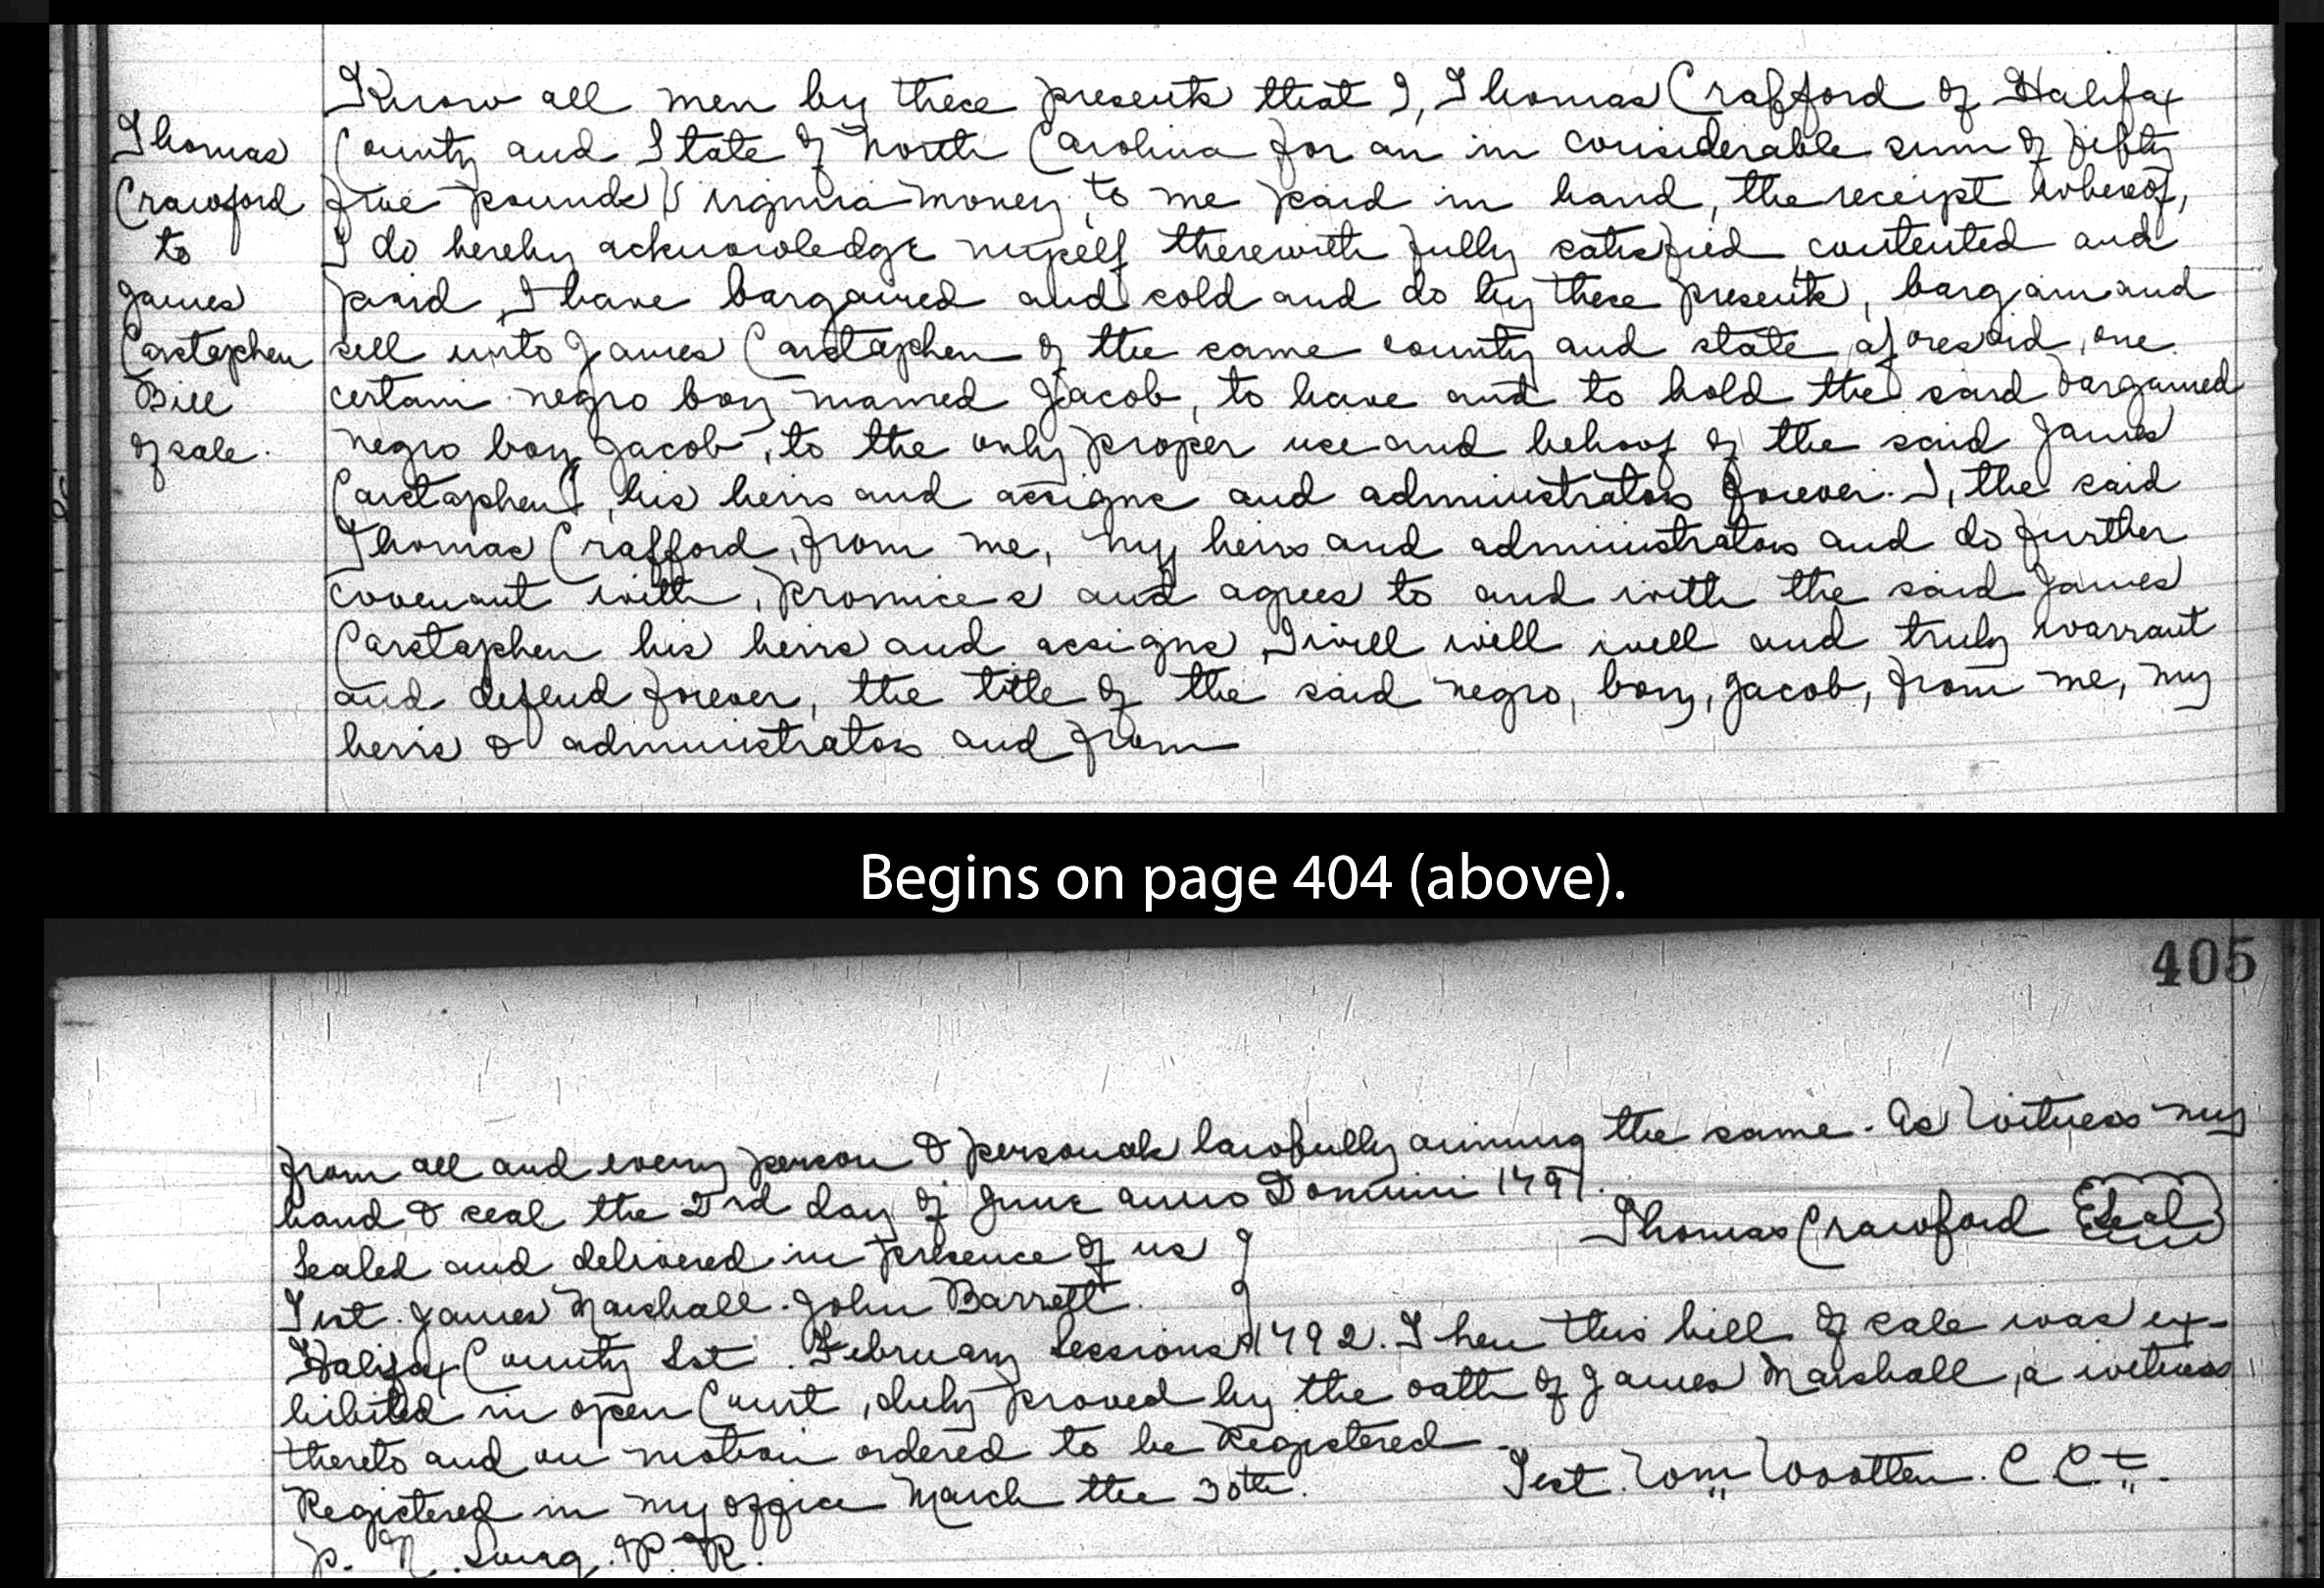 Thomas
Crawford
to
James
Carstaphen
Bill
of sale.
Know all men by these presents that I, Thomas Crafford of Halifax
County and State of North Carolina for an in considerable sum of fifty
five pounds Virginia money, to me paid in hand, the receipt whereof,
I do hereby acknowledge myself therewith fully satisfied contented and
paid, I have bargained and sold and do by these presents, bargain and
sell unto James Carstaphen of the same county and state aforesaid, one
certain negro boy named Jacob, to have and to hold the said bargained
negro boy Jacob, to the only proper use and behoof of the said James
Carstaphen, his heirs and assigns and administrators forever. I, the said
Thomas Crafford, from me, my heirs and administrators and do further
covenant with, promises and agrees to and with the said James
Carstaphen his heirs and assigns, I will will well and truly warrant
and defend forever, the title of the said negro, boy, Jacob, from me, my
heirs & administrators and from
Begins on page 404 (above).
405
from all and every person & persons lawfully aiming the same. As Witness my
hand & seal the 23rd day of June anno Domini 1791.
Thomas Crawford Seal
Sealed and delivered in presence of us
Test. James Marshall. John Barrett.
Halifax County Sst. February Sessions 1792. Then this bill of sale was ex-
hibited in open Court, duly proved by the oath of James Marshall, a witness
thereto and on motion ordered to be Registered.
Test. Wm Wootten. C C t.
Registered in my office March the 30th.
P. R.